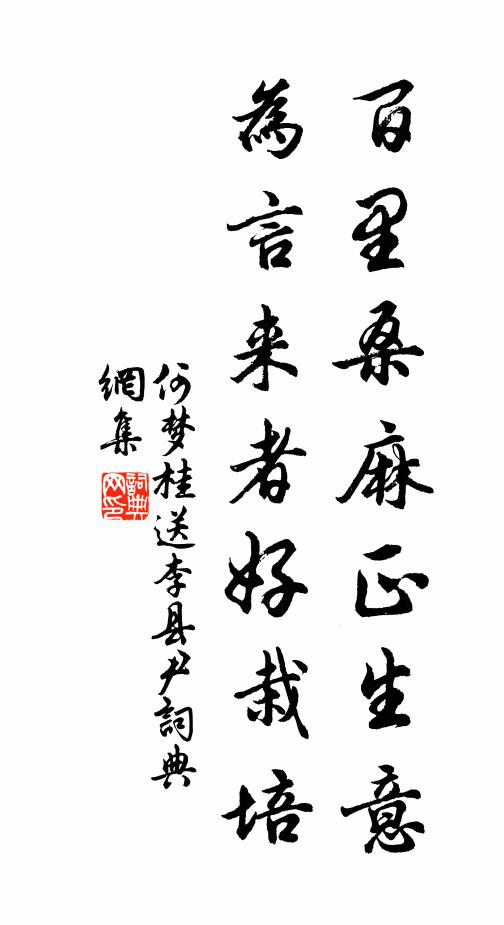 百里桑麻正生意
為言来者好栽培
何梦桂送李县尹詞典
網集
詞典网印